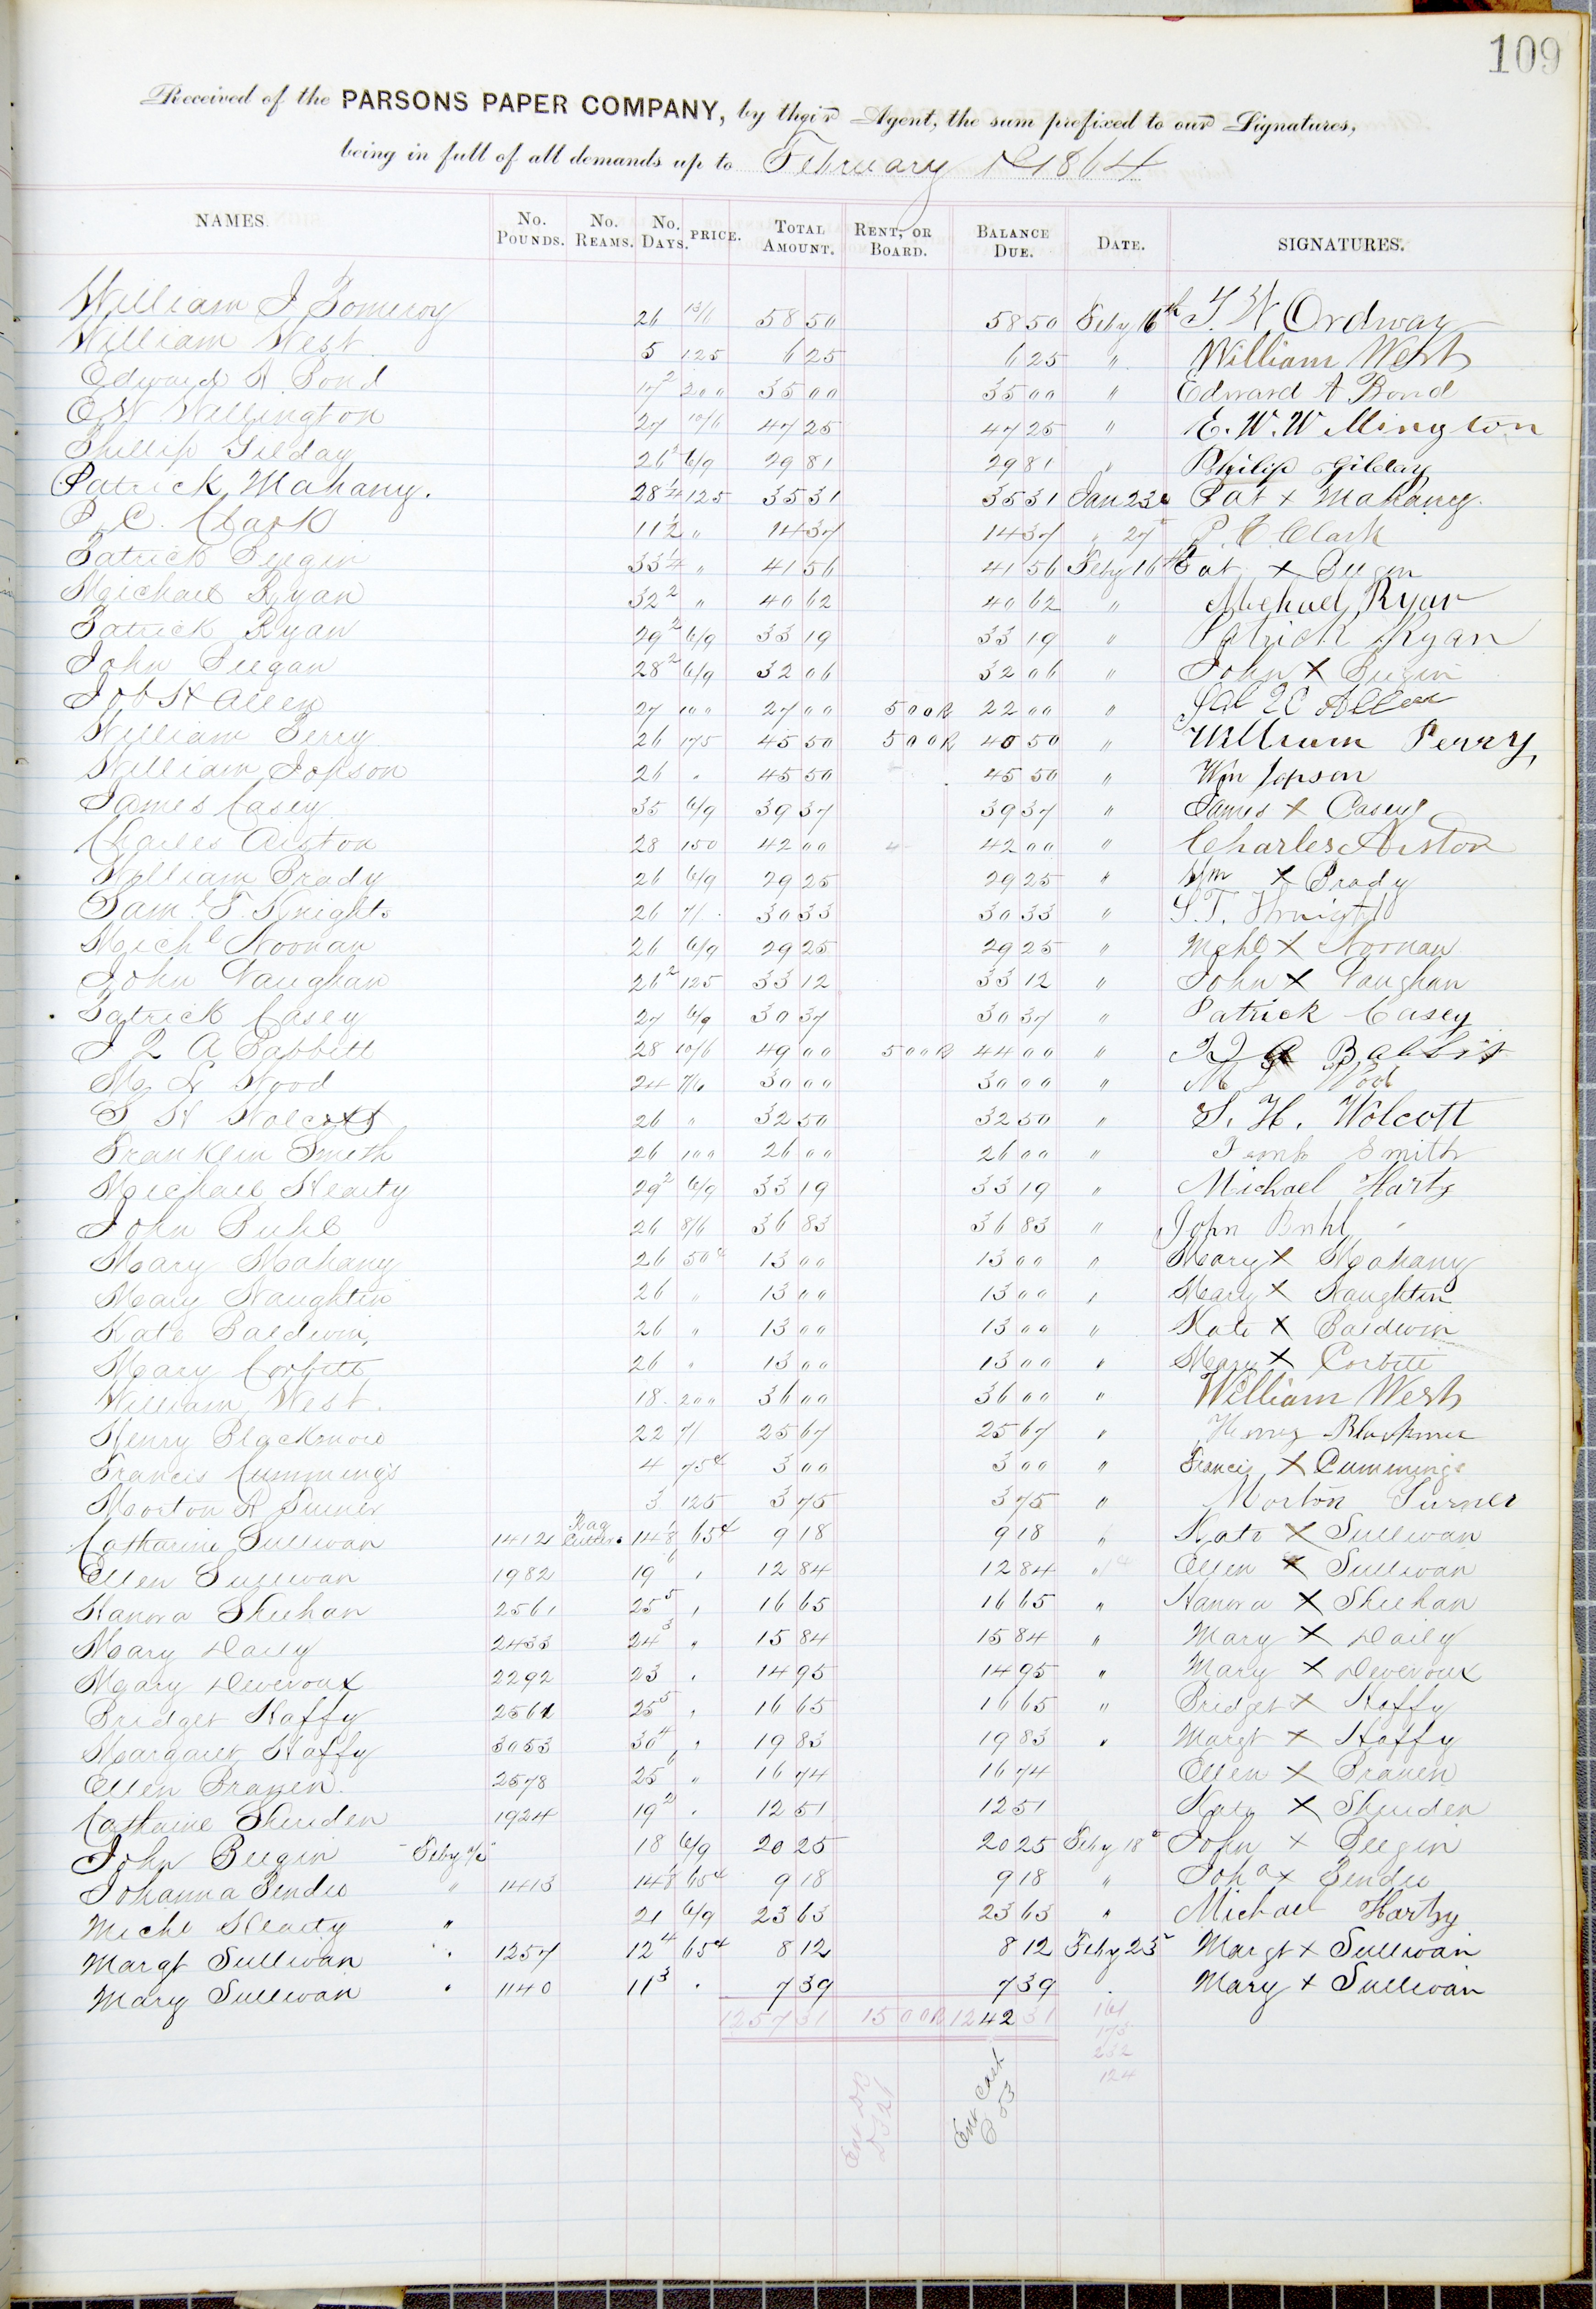 109
Received of the PARSONS PAPER COMPANY, by their Agent, the sum prefixed to our Signatures,
being in full of all demands up to February 1st 1864
NAMES. No. Pounds. No. Reams. No. Days. PRICE. Total Amount. Rent, or Board. Balance Due. Date. SIGNATURES.
William J Pomeroy 26 13/6 58 50 58 50 Feby 16th T. W Ordway
William West 5 125 6 25 6 25 " William West
Edward A Bond 17 2 200 35 00 35 00 " Edward A Bond
E W Wellington 27 10/6 47 25 47 25 " E. W. Wellington
Phillip Gilday 26 2 6/9 29 81 29 81 " Philip Gilday
Patrick Mahany. 28 1/4 125 35 31 35 31 Jan 23d Pat x Mahany.
P. C. Clark 11 1/2 " 14 37 14 37 " 27 P. C. Clark
Patrick Beegin 33 1/4 " 41 56 41 56 Feby 16th Pat x Beegin
Michael Ryan 32 2 " 40 62 40 62 " Michael Ryan
Patrick Ryan 29 2 6/9 33 19 33 19 " Patrick Ryan
John Beegan 28 2 6/9 32 06 32 06 " John X Beegin
Job H Allen 27 100 27 00 5 00 R 22 00 " Job H Allen
William Perry 26 175 45 50 5 00 R 40 50 " William Perry
William Jopson 26 " 45 50 45 50 " Wm Jopson
James Casey 35 6/9 39 37 39 37 " James x Casey
Charles Aiston 28 150 42 00 42 00 " Charles Aiston
William Brady 26 6/9 29 25 29 25 " Wm x Brady
Saml T. Knights 26 7/ 30 33 30 33 " S. T. Knights
Michl Noonan 26 6/9 29 25 29 25 " Mchl x Noonan
John Vaughan 26 2 125 33 12 33 12 " John x Vaughan
Patrick Casey 27 6/9 30 37 30 37 " Patrick Casey
J Q A Babbitt 28 10/6 49 00 5 00 R 44 00 " J Q A Babbit
M L Wood 24 7/6 30 00 30 00 " M L Wood
S H Wolcott 26 " 32 50 32 50 " S. H. Wolcott
Franklin Smith 26 100 26 00 26 00 " Frank Smith
Michael Hearty 29 2 6/9 33 19 33 19 " Michael Harty
John Buhl 26 8/6 36 83 36 83 " John Buhl
Mary Mahany 26 50c 13 00 13 00 " Mary x Mahany
Mary Naughten 26 " 13 00 13 00 " Mary x Naughten
Kate Baldwin 26 " 13 00 13 00 " Kate x Baldwin
Mary Corbett 26 " 13 00 13 00 " Mary x Corbett
William West. 18 200 36 00 36 00 " William West
Henry Blackmore 22 7/ 25 67 25 67 " Henry Blackmer
Francis Cummings 4 75c 3 00 3 00 " Francis x Cummings
Morton R Turner 3 125 3 75 3 75 " Morton Turner
Catharine Sullivan 1412 Rag Cutters 14 1/8 65c 9 18 9 18 " Kate x Sullivan
Ellen Sullivan 1982 19 6 " 12 84 12 84 " Ellen x Sullivan
Hanora Sheehan 2561 25 5 " 16 65 16 65 " Hanora x Sheehan
Mary Daily 2433 24 3 " 15 84 15 84 " Mary x Daily
Mary Deveroux 2292 23 " 14 95 14 95 " Mary x Deveroux
Bridget Haffy 2561 25 5 " 16 65 16 65 " Bridget x Haffy
Margaret Haffy 3053 30 4 " 19 83 19 83 " Margt x Haffy
Ellen Branen 2578 25 6 " 16 74 16 74 Ellen x Branen
Catharine Sheriden 1924 19 2 " 12 51 12 51 Kate x Sheriden
John Beegin Feby 18 6/9 20 25 20 25 Feby 18 John x Beegin
Johanna " 1413 14 1/8 65c 9 18 9 18 " Joha x
Michl Hearty " 21 6/9 23 63 23 63 " Michael Harty
Margt Sullivan " 1257 12 4 65c 8 12 8 12 Feby 23 Margt x Sullivan
Mary Sullivan " 1140 11 3 " 7 39 7 39 " Mary x Sullivan
1257 31 15 00 R 1242 31 161
173
232
124
Ent Cash
P 53